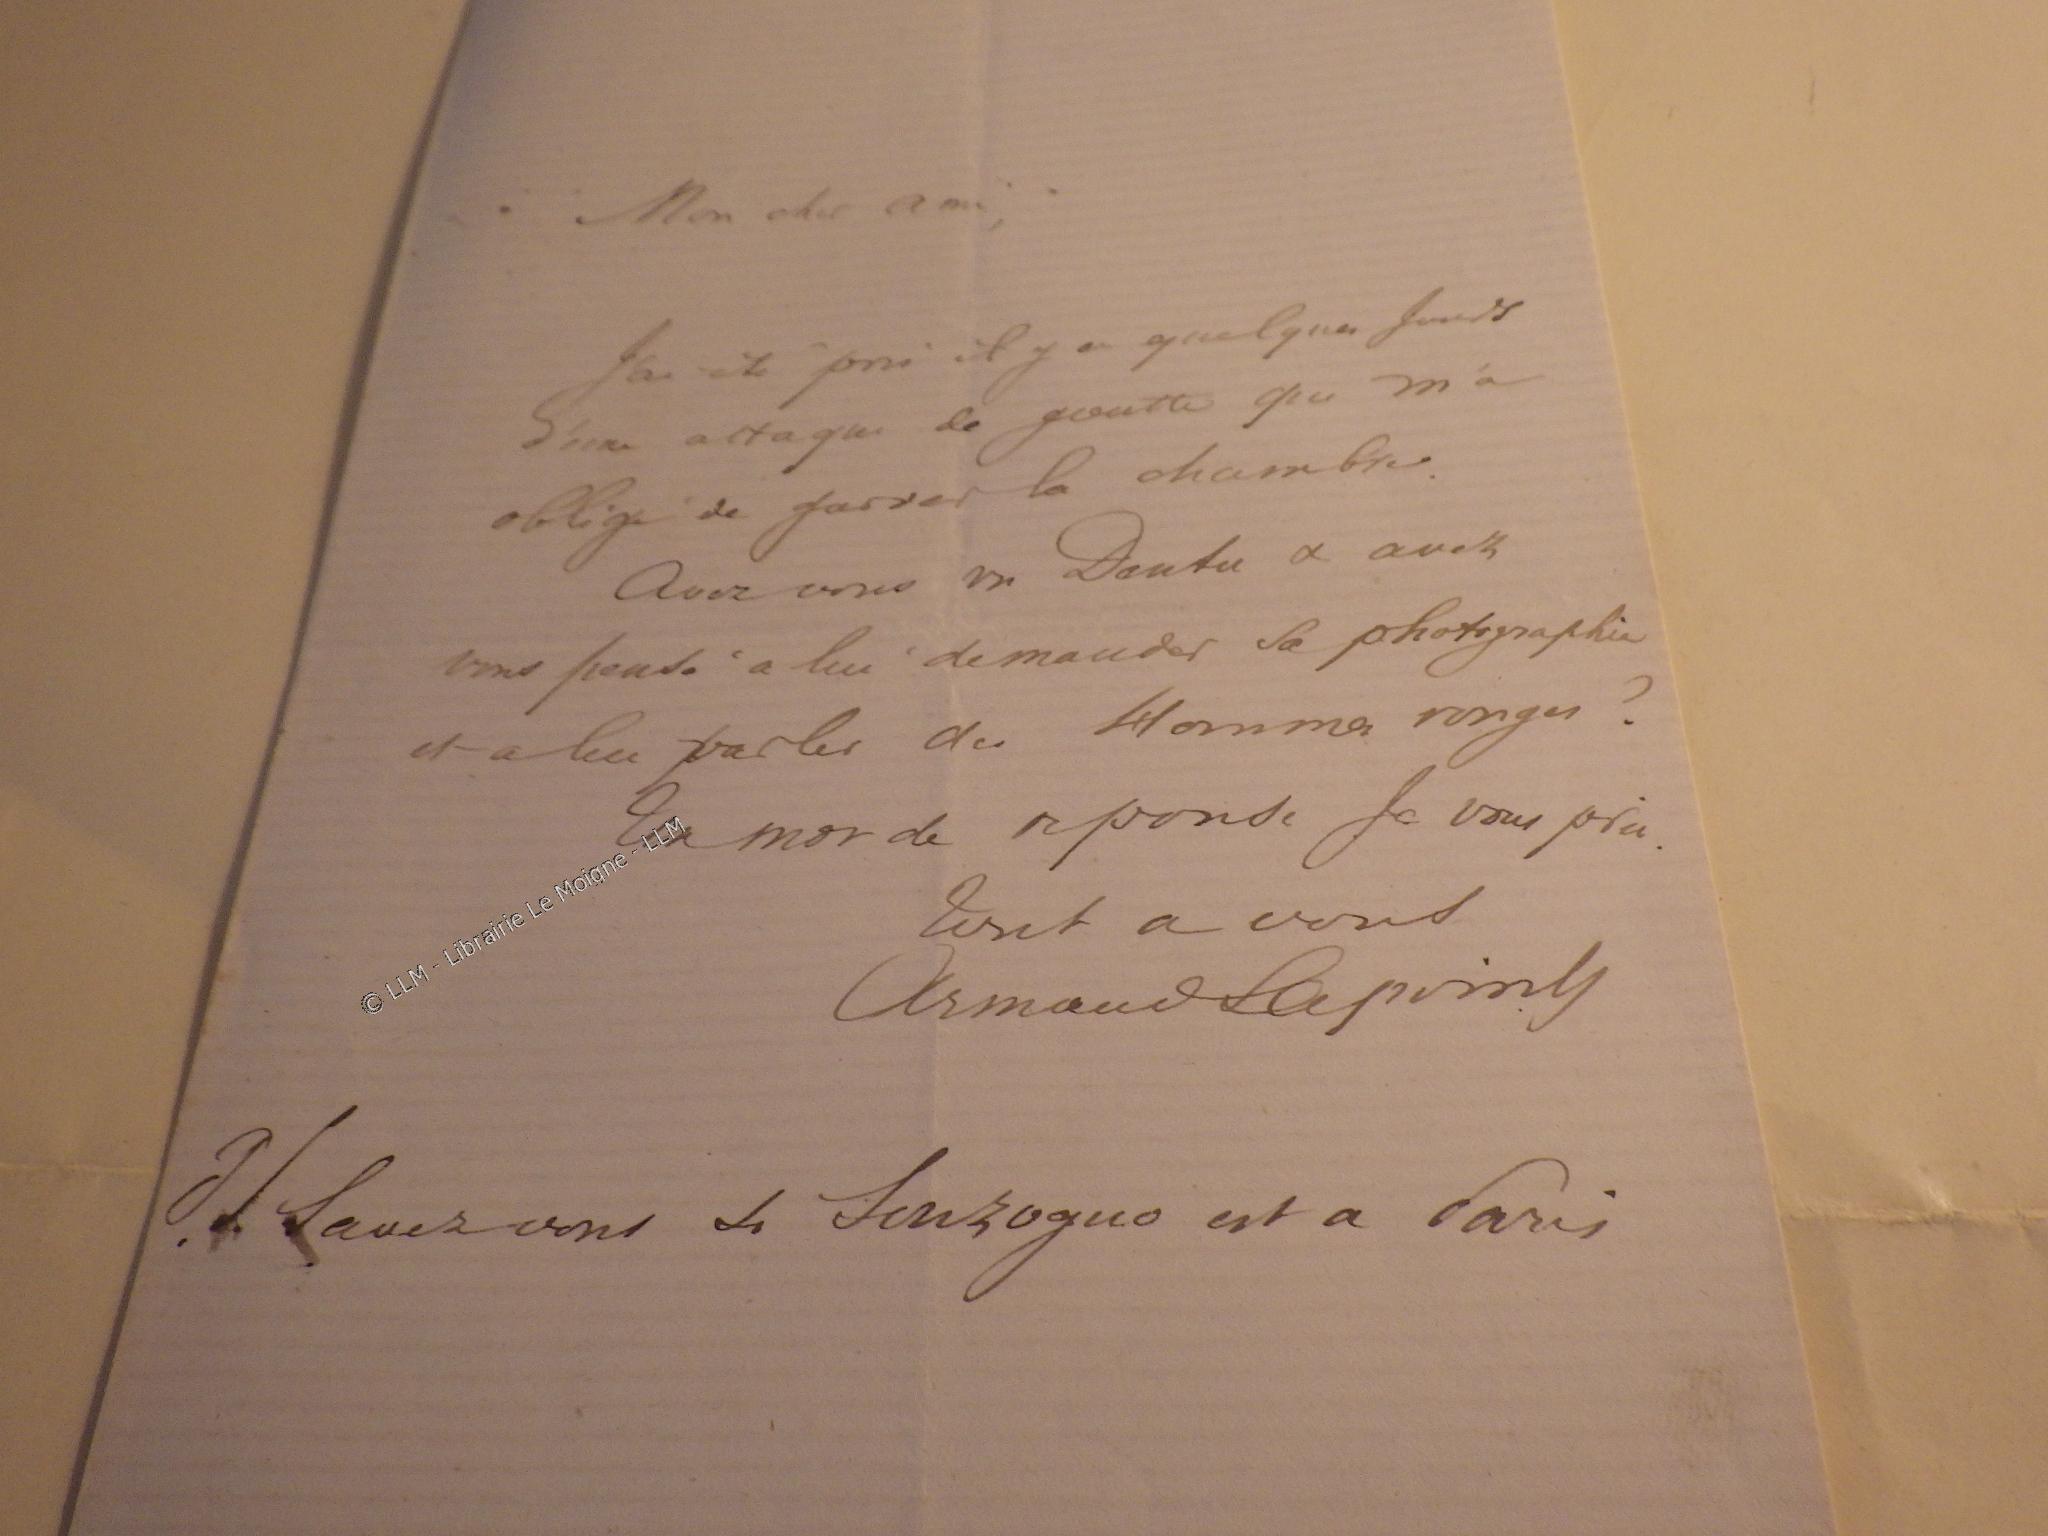 Mon cher ami,
J'ai été pris il y a quelques jours
d'une attaque de goutte qui m'a
obligé de garder la chambre.
Avez vous vu Dentu & avez
vous pensé a lui demander sa photographie
et a lui parler des Hommes rouges ?
Un mot de reponse Je vous prie.
Tout a vous
Armand Lapointe
P.S. Savez vous si Sonzogno est a Paris
© LLM - Librairie Le Moigne - LLM